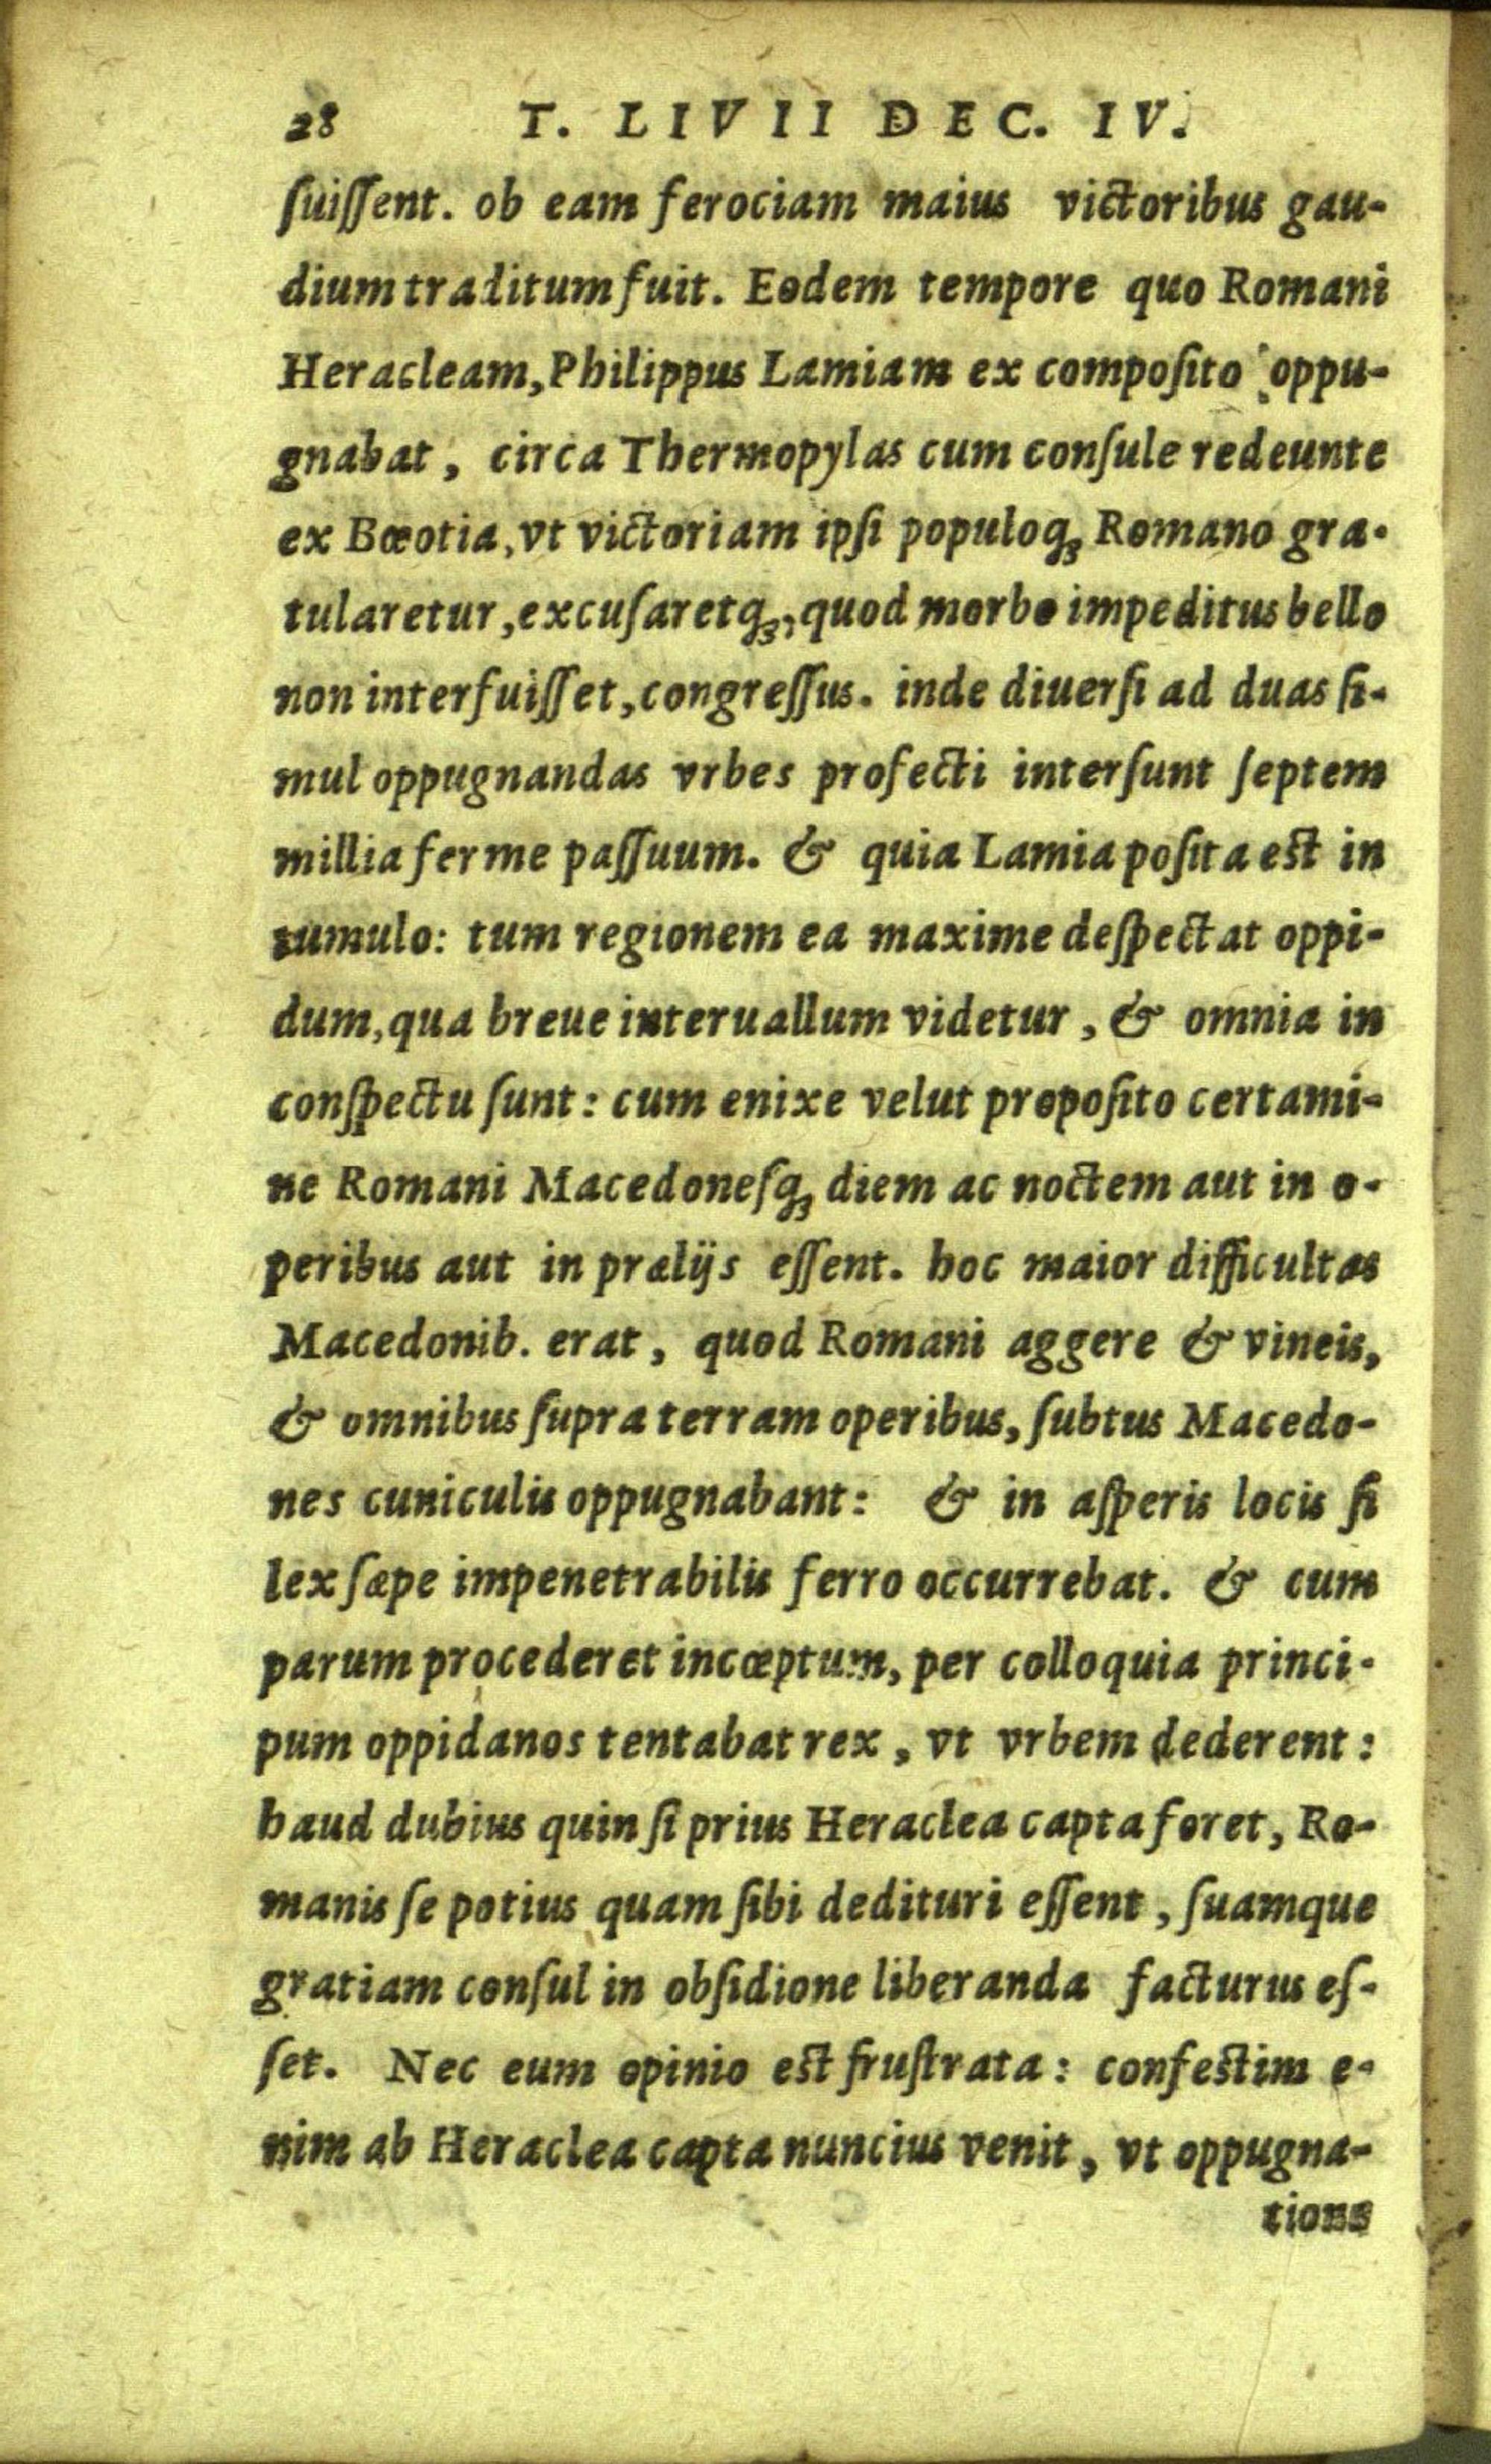 28 T. LIVII DEC. IV.
ſuiſſent. ob eam ferociam maius victoribus gau-
dium traditum fuit. Eodem tempore quo Romani
Heracleam, Philippus Lamiam ex compoſito oppu-
gnabat, circa Thermopylas cum conſule redeunte
ex Bœotia, vt victoriam ipſi populoq; Romano gra-
tularetur, excuſaretq;, quod morbo impeditus bello
non interfuiſſet, congreſſus. inde diuerſi ad duas ſi-
mul oppugnandas vrbes profecti interſunt ſeptem
millia ferme paſſuum. & quia Lamia poſita eſt in
tumulo: tum regionem ea maxime deſpectat oppi-
dum, qua breue interuallum videtur, & omnia in
conſpectu ſunt: cum enixe velut propoſito certami-
ne Romani Macedoneſq; diem ac noctem aut in o-
peribus aut in prælijs eſſent. hoc maior difficultas
Macedonib. erat, quod Romani aggere & vineis,
& omnibus ſupra terram operibus, ſubtus Macedo-
nes cuniculis oppugnabant: & in aſperis locis ſi
lex ſæpe impenetrabilis ferro occurrebat. & cum
parum procederet incœptum, per colloquia princi-
pum oppidanos tentabat rex, vt vrbem dederent:
haud dubius quin ſi prius Heraclea capta foret, Ro-
manis ſe potius quam ſibi dedituri eſſent, ſuamque
gratiam conſul in obſidione liberanda facturus eſ-
ſet. Nec eum opinio eſt fruſtrata: confeſtim e-
nim ab Heraclea capta nuncius venit, vt oppugna-
tione